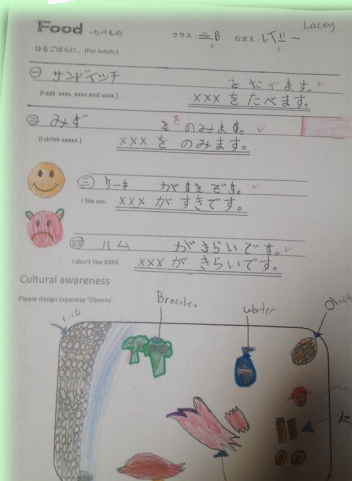 Food -たべもの
クラス: 三B なまえ: レイシー Lacey
ひるごはんに、(For lunch,)
㊀ サンドイッチ をたべます。
(I eat xxxx, xxxx and xxxx.) xxx をたべます。
㊁ みず をのみます。
(I drink xxxxx.) xxx を のみます。
㊂ ケーキ がすきです。
I like xxx. xxx が すきです。
㊃ ハム がきらいです。
I don't like XXXX. xxx が きらいです。
Cultural awareness
Please design Japanese 'Obento'.
Water